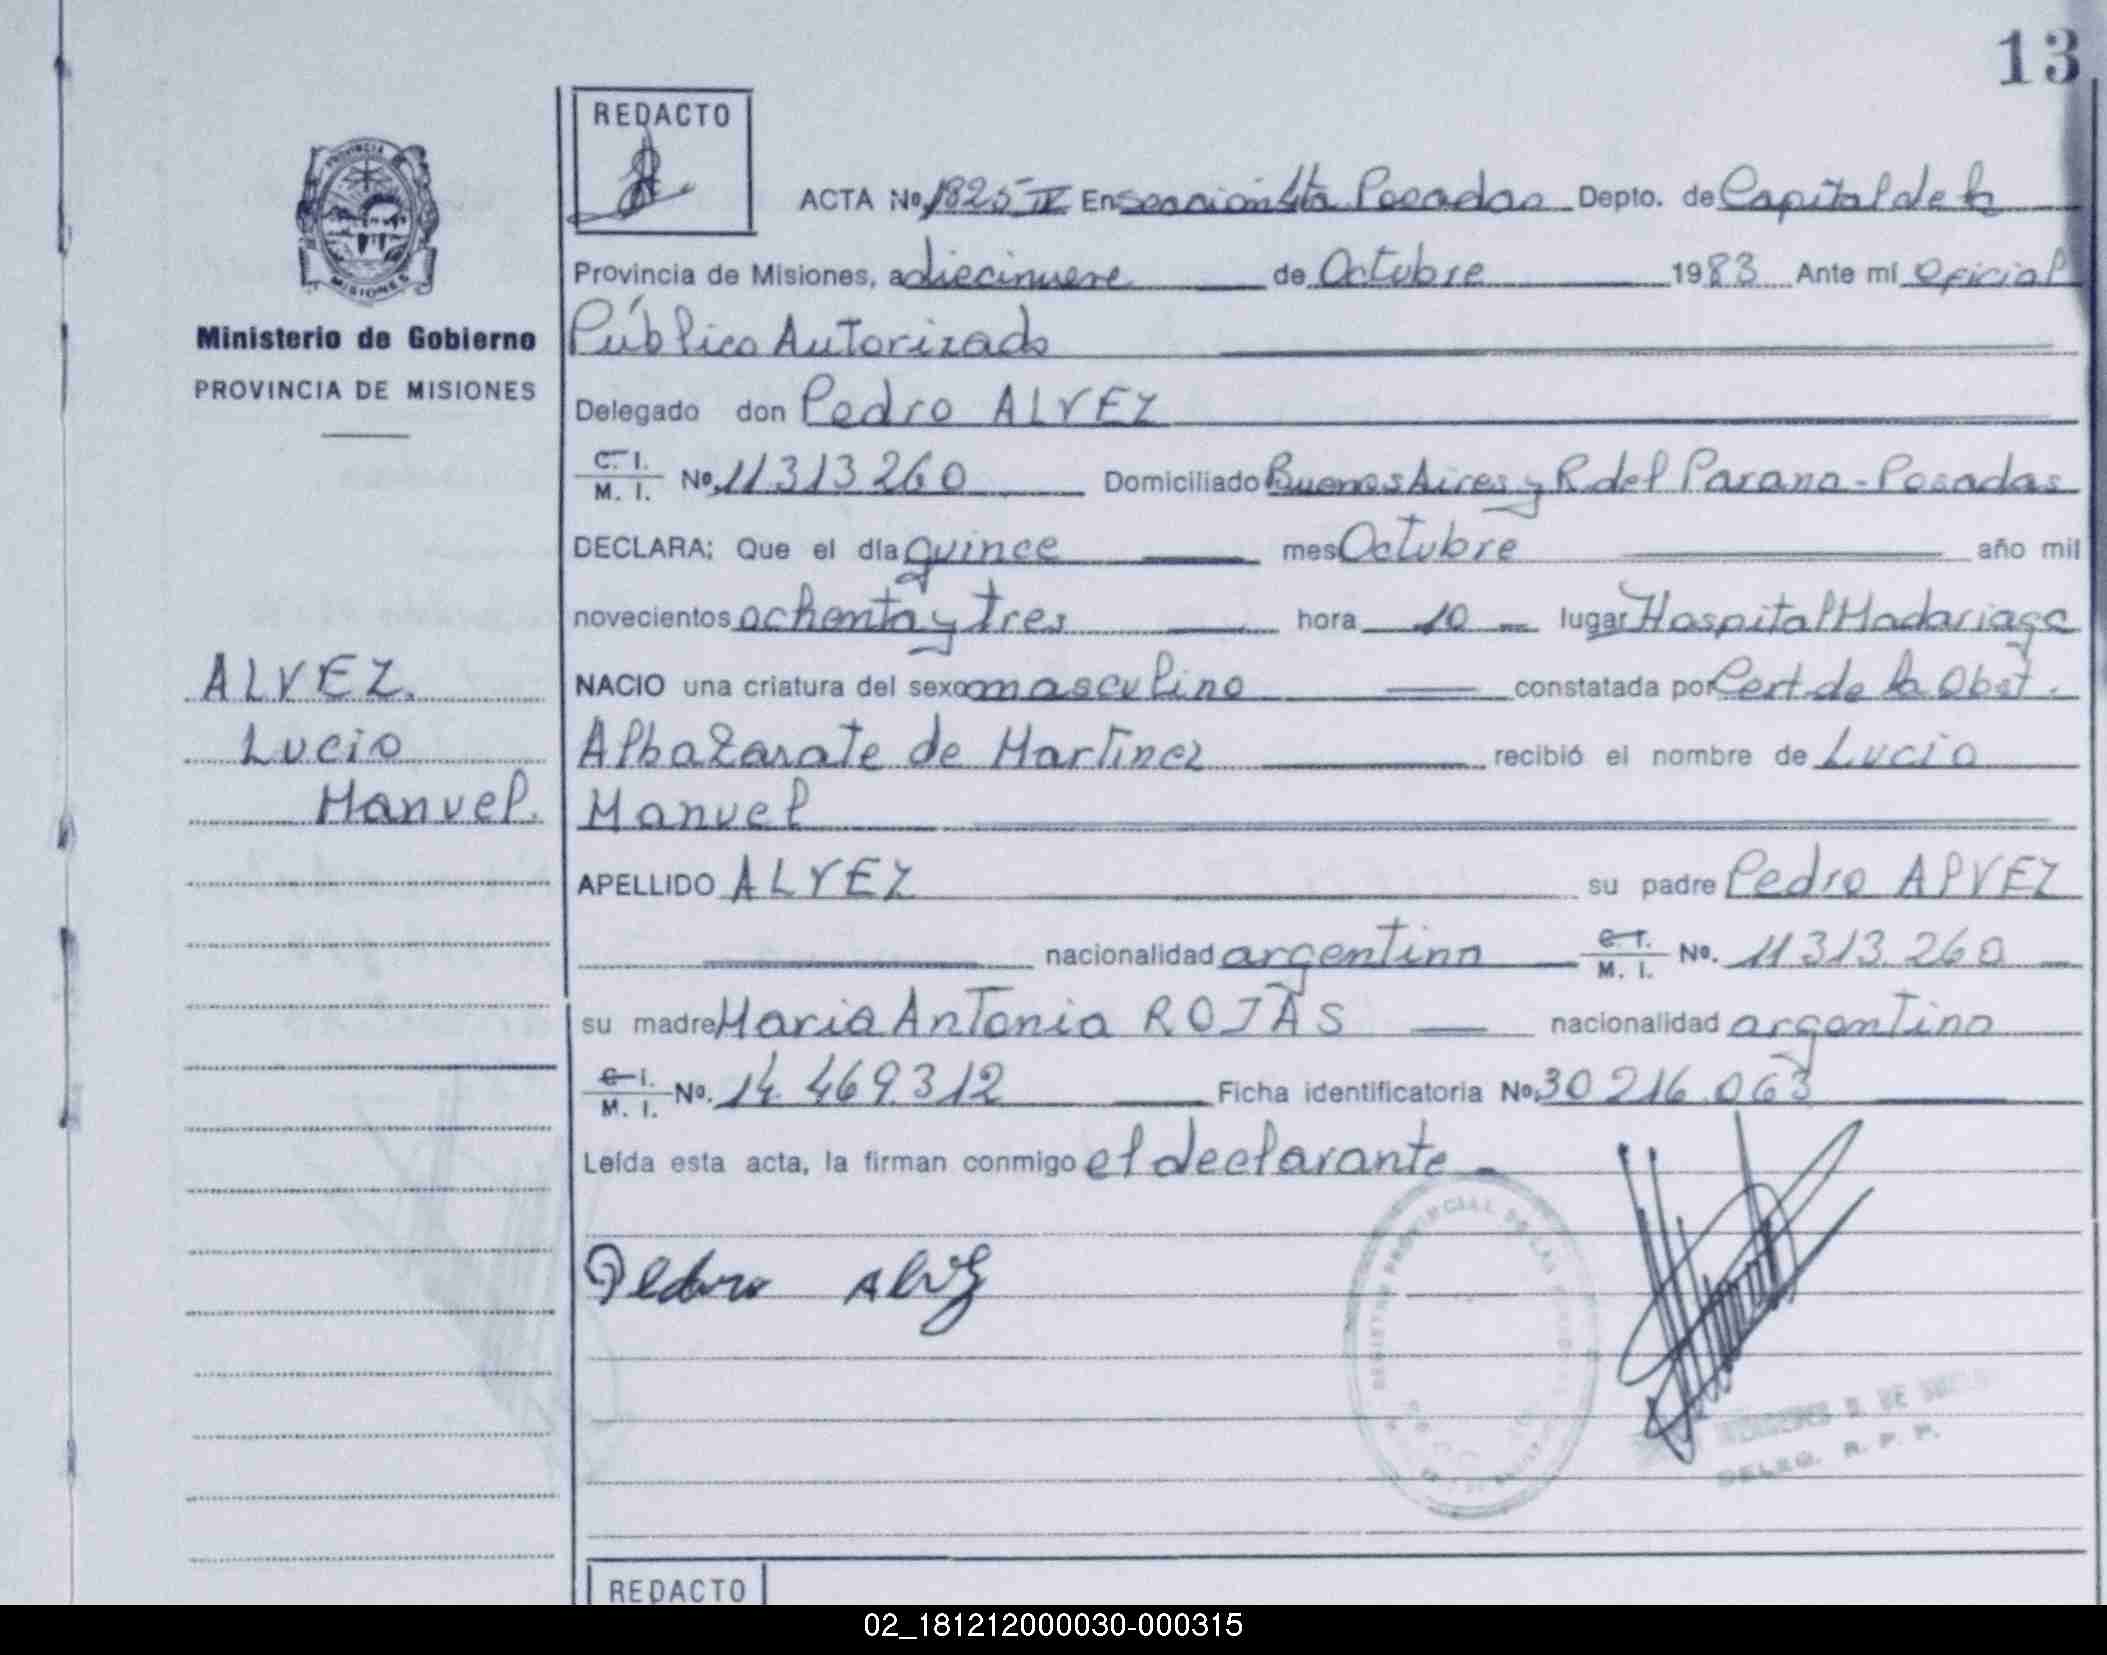 13
REDACTO
PROVINCIA DE
MISIONES
Ministerio de Gobierno
PROVINCIA DE MISIONES
ACTA No. 1825 IV En sección 4ta Posadas Depto. de Capital de la
Provincia de Misiones, a diecinueve de Octubre 1983 Ante mí Oficial
Público Autorizado
Delegado don Pedro ALVEZ
C. I. M. I. No. 11313260 Domiciliado Buenos Aires y R del Parana - Posadas
DECLARA; Que el día quince mes Octubre año mil
novecientos ochenta y tres hora 10 lugar Hospital Madariaga
NACIO una criatura del sexo masculino constatada por Cert. de la Obst.
Alba Zarate de Martinez recibió el nombre de Lucio
Manuel
APELLIDO ALVEZ su padre Pedro AlVEZ
nacionalidad argentina C. I. M. I. No. 11313.260
su madre Maria Antonia ROJAS nacionalidad argentina
C. I. M. I. No. 14.469.312 Ficha identificatoria No. 30216.063
Leída esta acta, la firman conmigo el declarante
ALVEZ.
Lucio
Manuel.
Pedro Alvez
REGISTRO PROVINCIAL DE LAS
DE
DELEG. R. P. P.
REDACTO
02_181212000030-000315